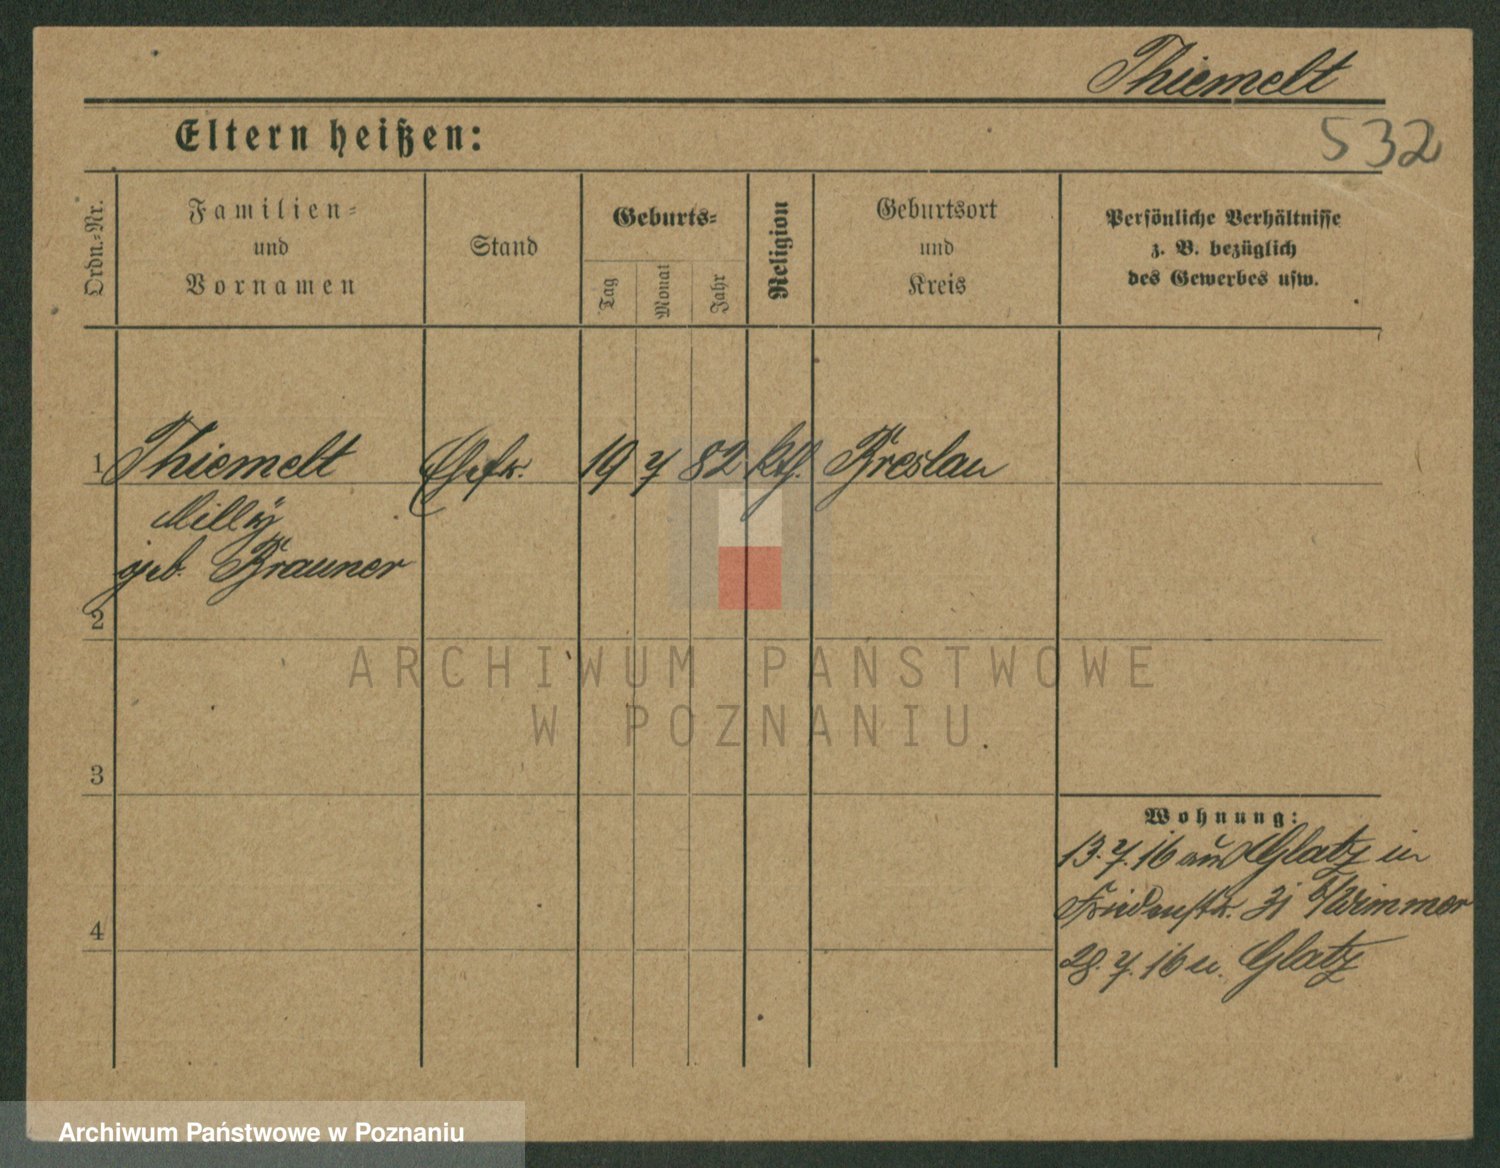 Thiemelt
532
Eltern heißen:
Ordn.-Nr.
Familien-
und
Vornamen
Stand
Geburts-
Tag
Monat
Jahr
Religion
Geburtsort
und
Kreis
Persönliche Verhältnisse
z. B. bezüglich
des Gewerbes usw.
1 Thiemelt Ehefr. 19 7 82 kth. Breslau
Milly
geb. Brauner
2
3
4
Wohnung:
13.7.16 aus Glatz in
Friedenstr. 31 b/Wimmer
28.7.16 n. Glatz
ARCHIWUM PAŃSTWOWE
W POZNANIU
Archiwum Państwowe w Poznaniu